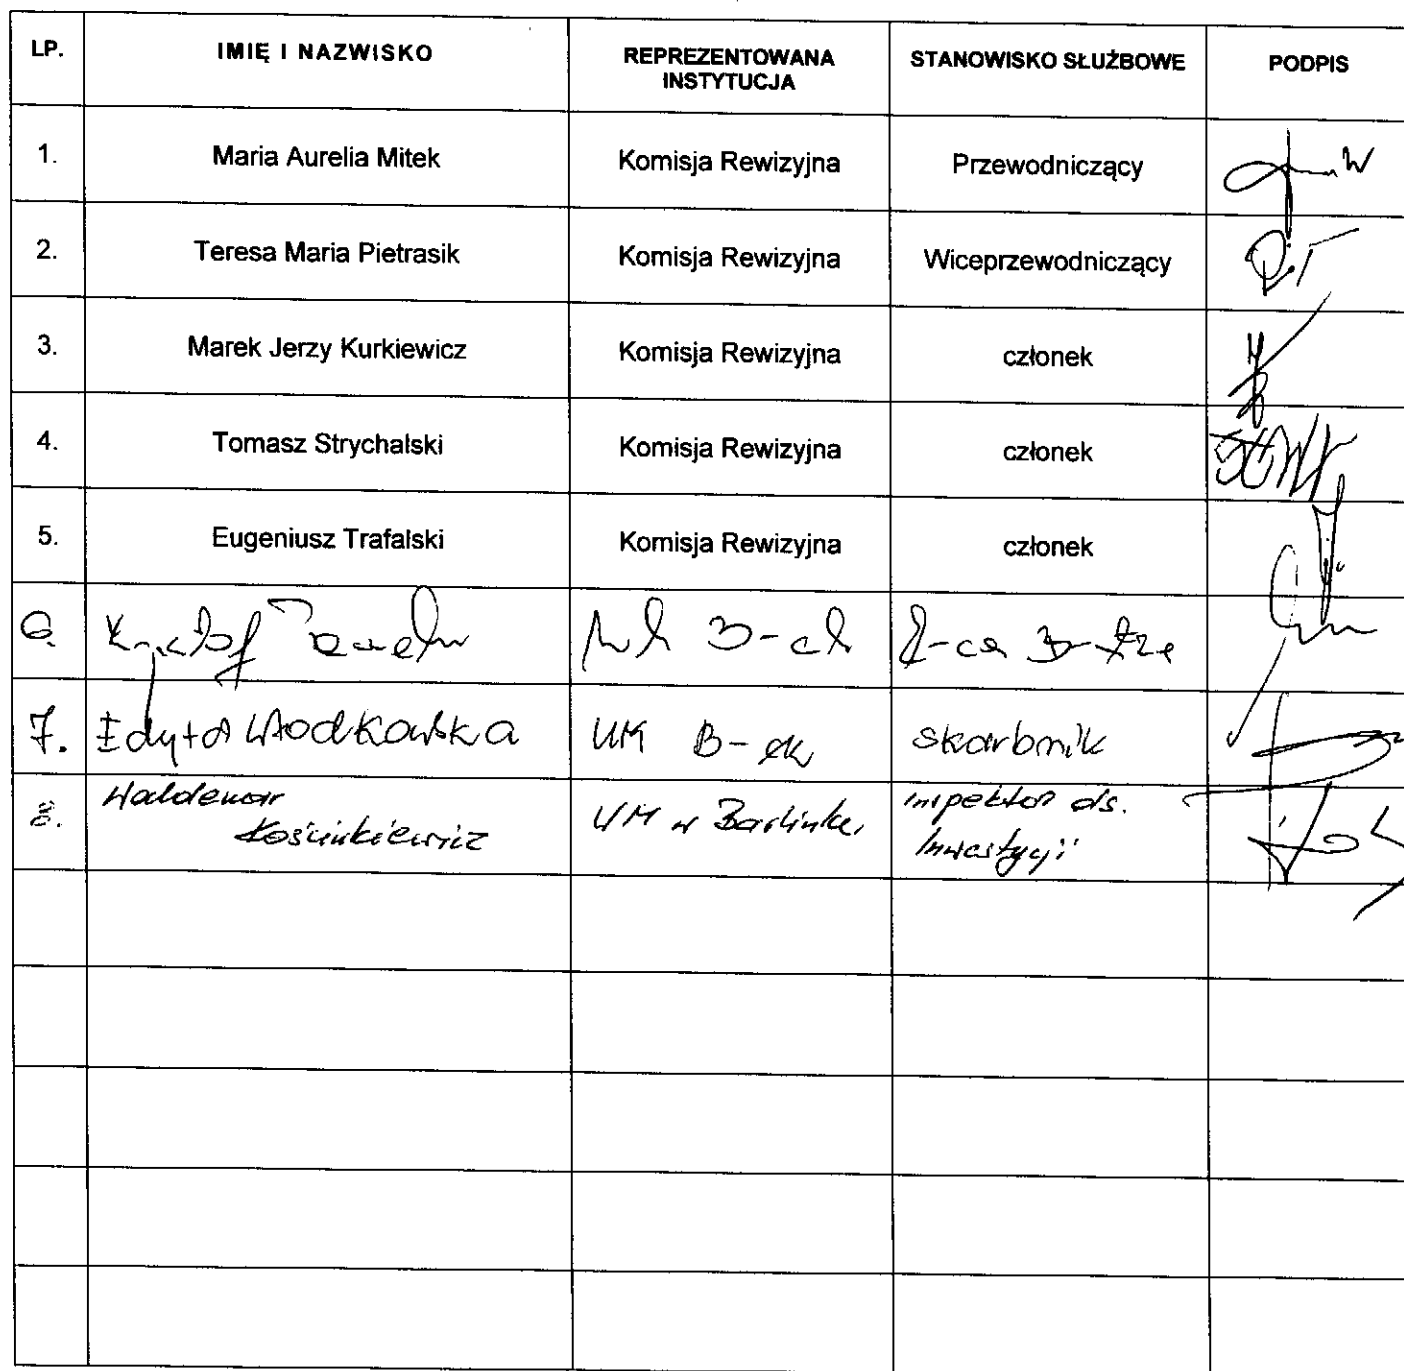 LP.
IMIĘ I NAZWISKO
REPREZENTOWANA
INSTYTUCJA
STANOWISKO SŁUŻBOWE
PODPIS
1.
Maria Aurelia Mitek
Komisja Rewizyjna
Przewodniczący
2.
Teresa Maria Pietrasik
Komisja Rewizyjna
Wiceprzewodniczący
3.
Marek Jerzy Kurkiewicz
Komisja Rewizyjna
członek
4.
Tomasz Strychalski
Komisja Rewizyjna
członek
5.
Eugeniusz Trafalski
Komisja Rewizyjna
członek
6.
Krzysztof
7.
Edyta Włodkowska
UM B-ek
skarbnik
8.
Waldemar
Kościukiewicz
UM w Barlinku
inspektor ds.
Inwestycji